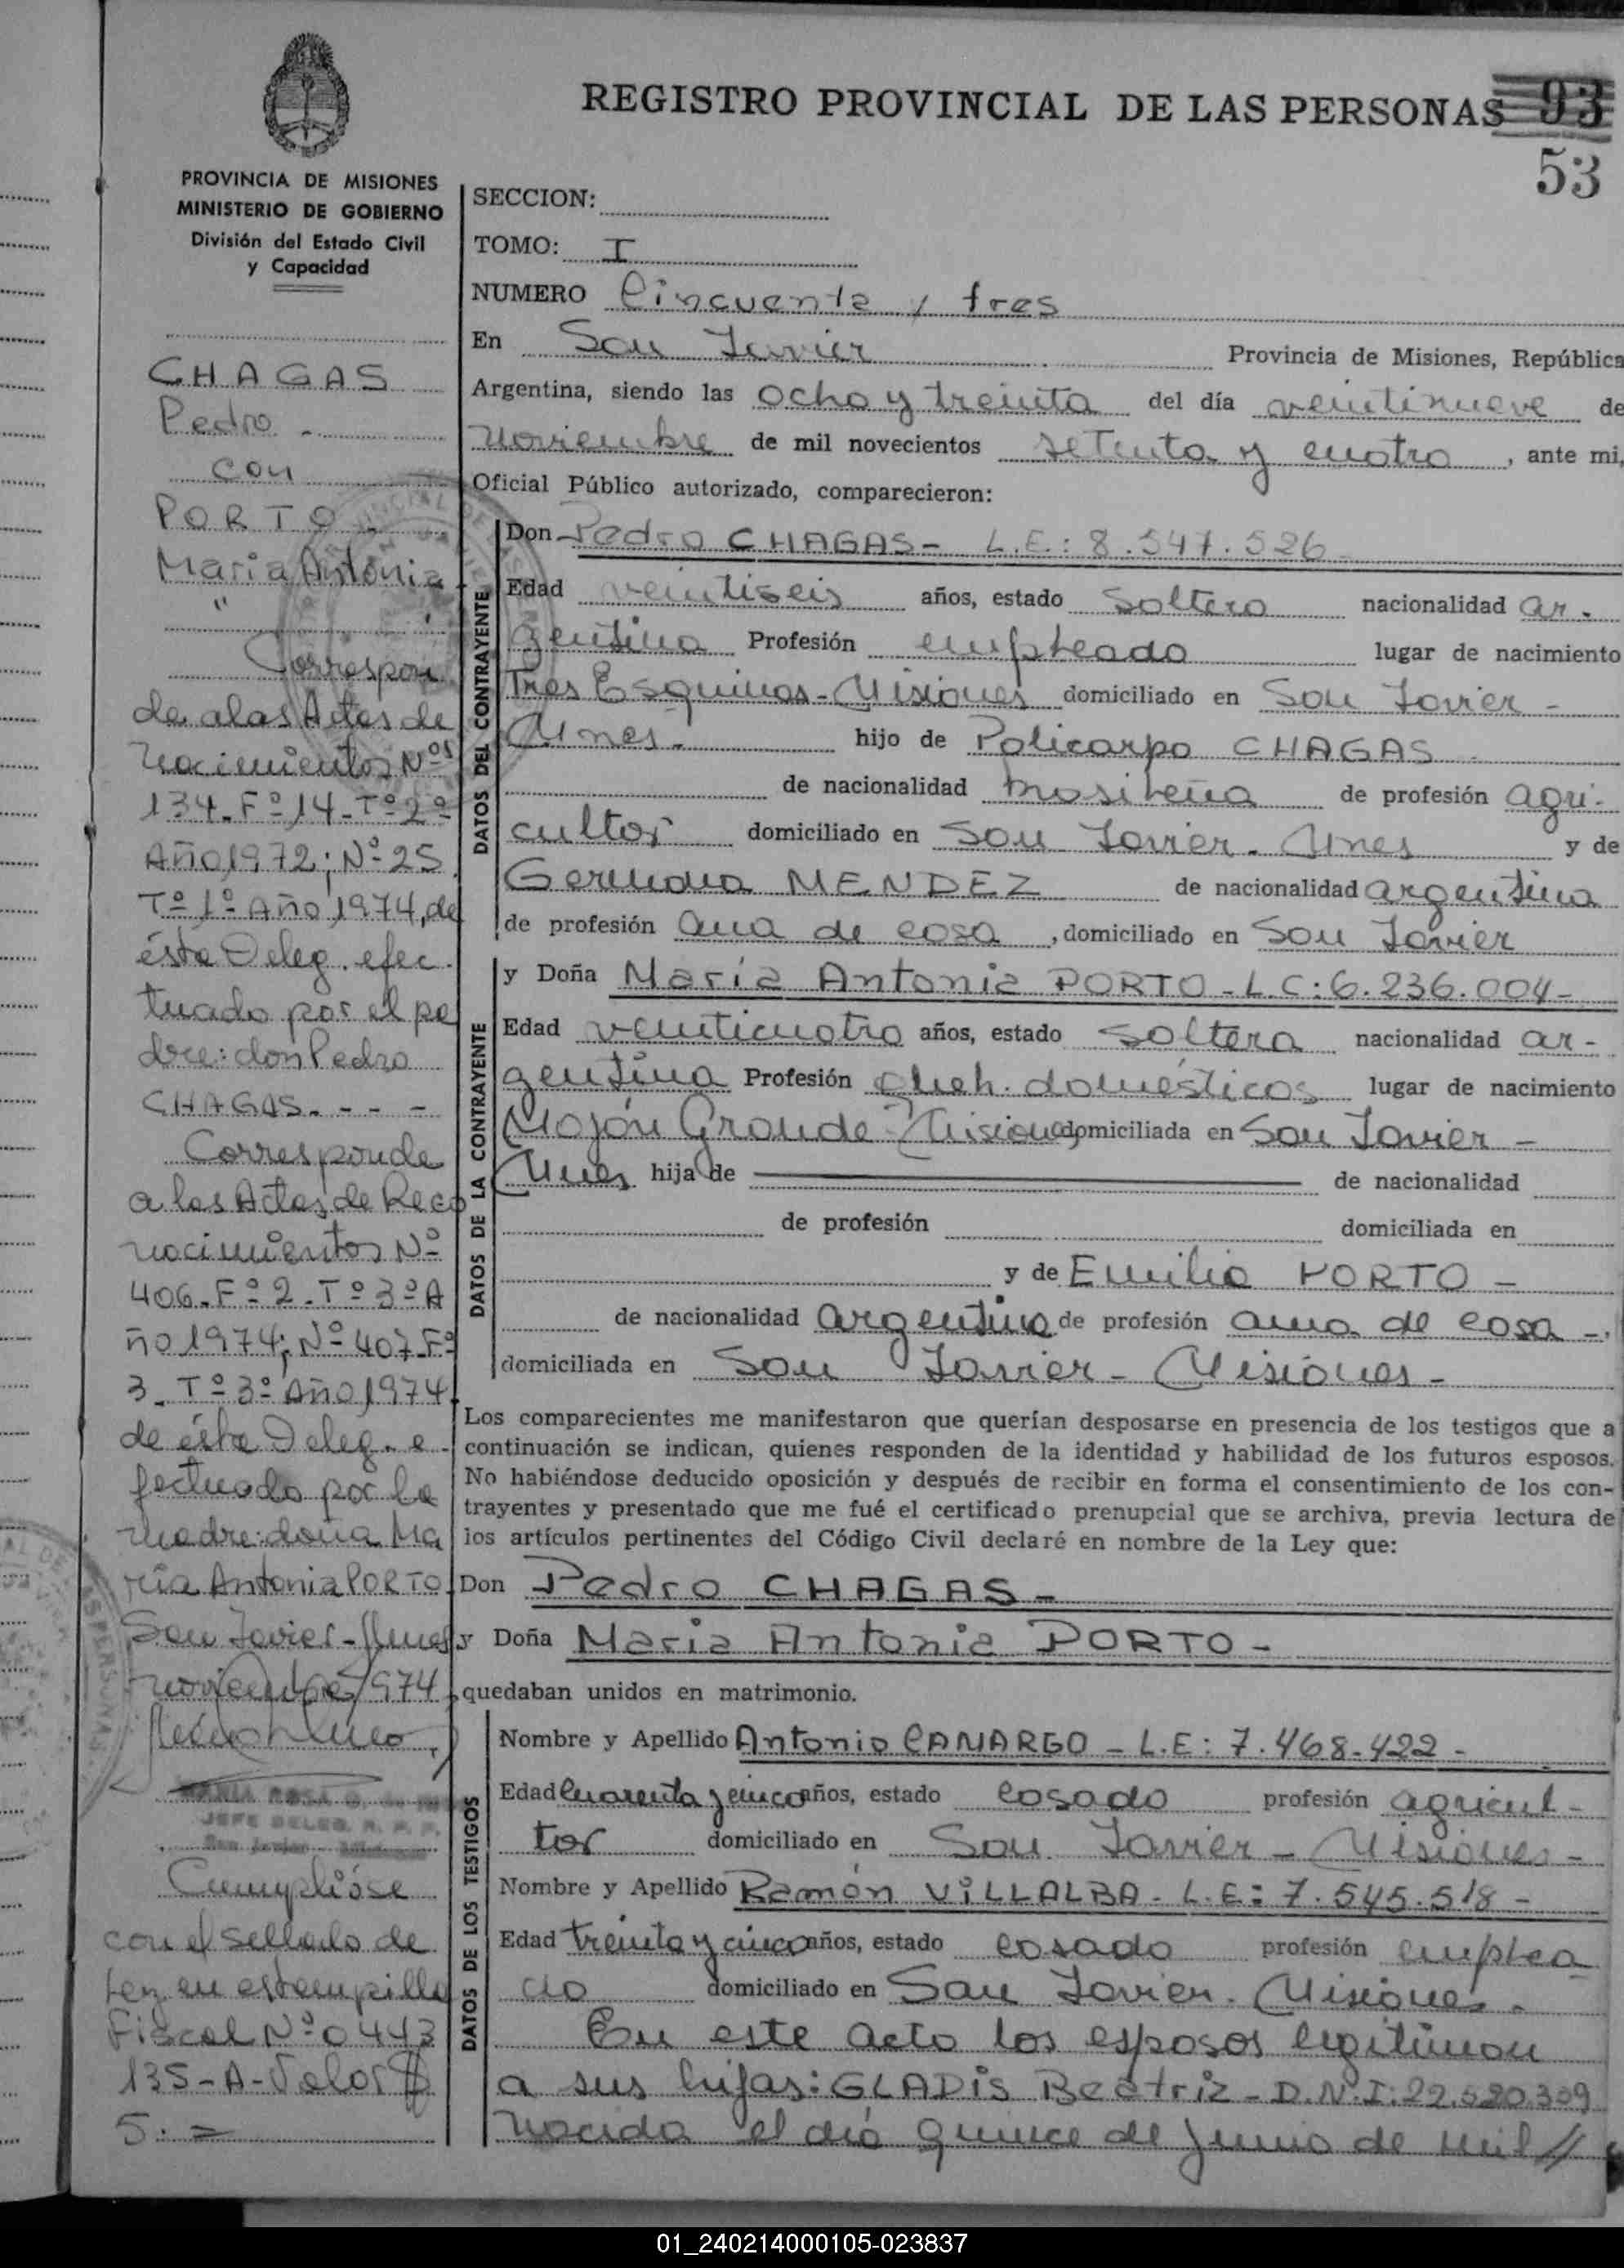 REGISTRO PROVINCIAL DE LAS PERSONAS 93
53
PROVINCIA DE MISIONES
MINISTERIO DE GOBIERNO
División del Estado Civil
y Capacidad
CHAGAS
Pedro -
con
PORTO
Maria Antonia
"
Correspon
de a las Actas de
Nacimientos Nos
134 - Fº 14 - Tº 2º
Año 1972; Nº 25
Tº 1º Año 1974, de
ésta Deleg. efec.
tuado por el pa
dre: don Pedro
CHAGAS. - - -
Corresponde
a las Actas de Reco
nocimientos Nº
406 - Fº 2 - Tº 3º A
ño 1974; Nº 407 - Fº
3 - Tº 3º Año 1974
de ésta Deleg. e -
fectuado por la
madre: doña Ma
ria Antonia PORTO
San Javier - Mnes
noviembre 1974
JEFE DELEG. R. P. P.
San Javier - Misiones
Cumplióse
con el sellado de
Ley en estampilla
Fiscal Nº 0443
135 - A - Valor $
5. =
SECCION:
TOMO: I
NUMERO Cincuenta y tres
En San Javier Provincia de Misiones, República
Argentina, siendo las ocho y treinta del día veintinueve de
noviembre de mil novecientos setenta y cuatro, ante mi,
Oficial Público autorizado, comparecieron:
DATOS DEL CONTRAYENTE
Don Pedro CHAGAS - L.E.: 8.547.526
Edad veintiseis años, estado soltero nacionalidad ar -
gentina Profesión empleado lugar de nacimiento
Tres Esquinas - Misiones domiciliado en San Javier -
Mnes. hijo de Policarpo CHAGAS
de nacionalidad brasileña de profesión agri -
cultor domiciliado en San Javier - Mnes y de
Germana MENDEZ de nacionalidad argentina
de profesión ama de casa, domiciliado en San Javier
DATOS DE LA CONTRAYENTE
y Doña María Antonia PORTO - L.C: 6.236.004 -
Edad veinticuatro años, estado soltera nacionalidad ar -
gentina Profesión queh. domésticos lugar de nacimiento
Mojón Grande - Misiones domiciliada en San Javier -
Mnes hija de de nacionalidad
de profesión domiciliada en
y de Emilia PORTO -
de nacionalidad argentina de profesión ama de casa - .
domiciliada en San Javier - Misiones -
Los comparecientes me manifestaron que querían desposarse en presencia de los testigos que a
continuación se indican, quienes responden de la identidad y habilidad de los futuros esposos.
No habiéndose deducido oposición y después de recibir en forma el consentimiento de los con-
trayentes y presentado que me fué el certificado prenupcial que se archiva, previa lectura de
los artículos pertinentes del Código Civil declaré en nombre de la Ley que:
Don Pedro CHAGAS -
y Doña Maria Antonia PORTO -
quedaban unidos en matrimonio.
DATOS DE LOS TESTIGOS
Nombre y Apellido Antonio CAMARGO - L.E: 7.468.422 -
Edad cuarenta y cinco años, estado casado profesión agricul -
tor domiciliado en San Javier - Misiones -
Nombre y Apellido Ramón VILLALBA - L.E: 7.545.518 -
Edad treinta y cinco años, estado casado profesión emplea
do domiciliado en San Javier - Misiones.
En este acto los esposos legitiman
a sus hijas: GLADIS Beatriz - D.N.I: 22.520.359
nacida el día quince de junio de mil //
01_240214000105-023837